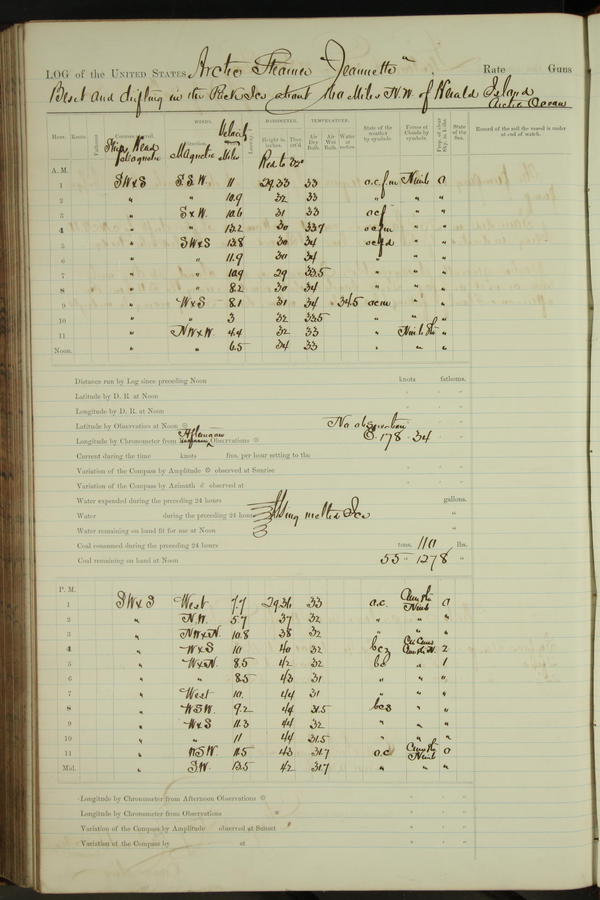 LOG of the UNITED STATES Arctic Steamer "Jeannette" Rate Guns
Beset and drifting in the Pack Ice about 60 Miles N.W. of Herald Island
Arctic Ocean
Hour. Knots. Fathoms. Courses steered. WINDS. BAROMETER. TEMPERATURE. State of the weather by symbols. Forms of Clouds by symbols. State of the Sea. Record of the sail the vessel is under at end of watch.
Ship's Head Magnetic Direction. Magnetic Velocity Miles Height in inches. Ther. Att'd Air Dry Bulb. Air Wet Bulb. Water at surface.
Red to 32°
A. M.
1 SW&S S.S.W. 11 29.33 33 o.c.f.m Nimb 0
2 " " 10.9 32 33 " " "
3 " S&W. 10.6 31 33 ocf " "
4 " " 13.2 30 33.7 ocfm " "
5 " SW&S 13.8 30 34 ocfd " "
6 " " 11.9 30 34 " " "
7 " " 10.9 29 33.5 " " "
8 " " 8.2 30 34 " " "
9 " W&S 8.1 31 34 34.5 ocm " "
10 " " 3 32 33.5 " " "
11 " NW&W. 4.4 32 33 " "
Noon. " " 6.5 34 33 " " "
Distance run by Log since preceding Noon knots fathoms.
Latitude by D. R. at Noon
Longitude by D. R. at Noon
Latitude by Observation at Noon No observation
Longitude by Chronometer from Afternoon Observations 178 34
Current during the time knots fms. per hour setting to the
Variation of the Compass by Amplitude observed at Sunrise
Variation of the Compass by Azimuth observed at
Water expended during the preceding 24 hours gallons.
Water during the preceding 24 hours Using melted Ice "
Water remaining on hand fit for use at Noon "
Coal consumed during the preceding 24 hours tons. 110 lbs.
Coal remaining on hand at Noon 55 1278 "
P. M.
1 SW&S West 7.7 29.36 33 o.c. Cum Sti Nimb 0
2 " N.W. 5.7 37 32 " " "
3 " NW&N. 10.8 38 32 " " "
4 " W&S 10 40 32 bcz 2
5 " W&N. 8.5 42 32 " 1
6 " " 8.5 43 31 " " "
7 " West 10 44 31 " " "
8 " WSW. 9.2 44 31.5 " "
9 " W&S 11.3 44 32 " " "
10 " " 11 44 31.5 " " "
11 " WSW. 11.5 43 31.7 o.c Cum Sti Nimb 0
Mid. " SW. 13.5 42 31.7 " " "
Longitude by Chronometer from Afternoon Observations
Longitude by Chronometer from Observations
Variation of the Compass by Amplitude observed at Sunset
Variation of the Compass by at